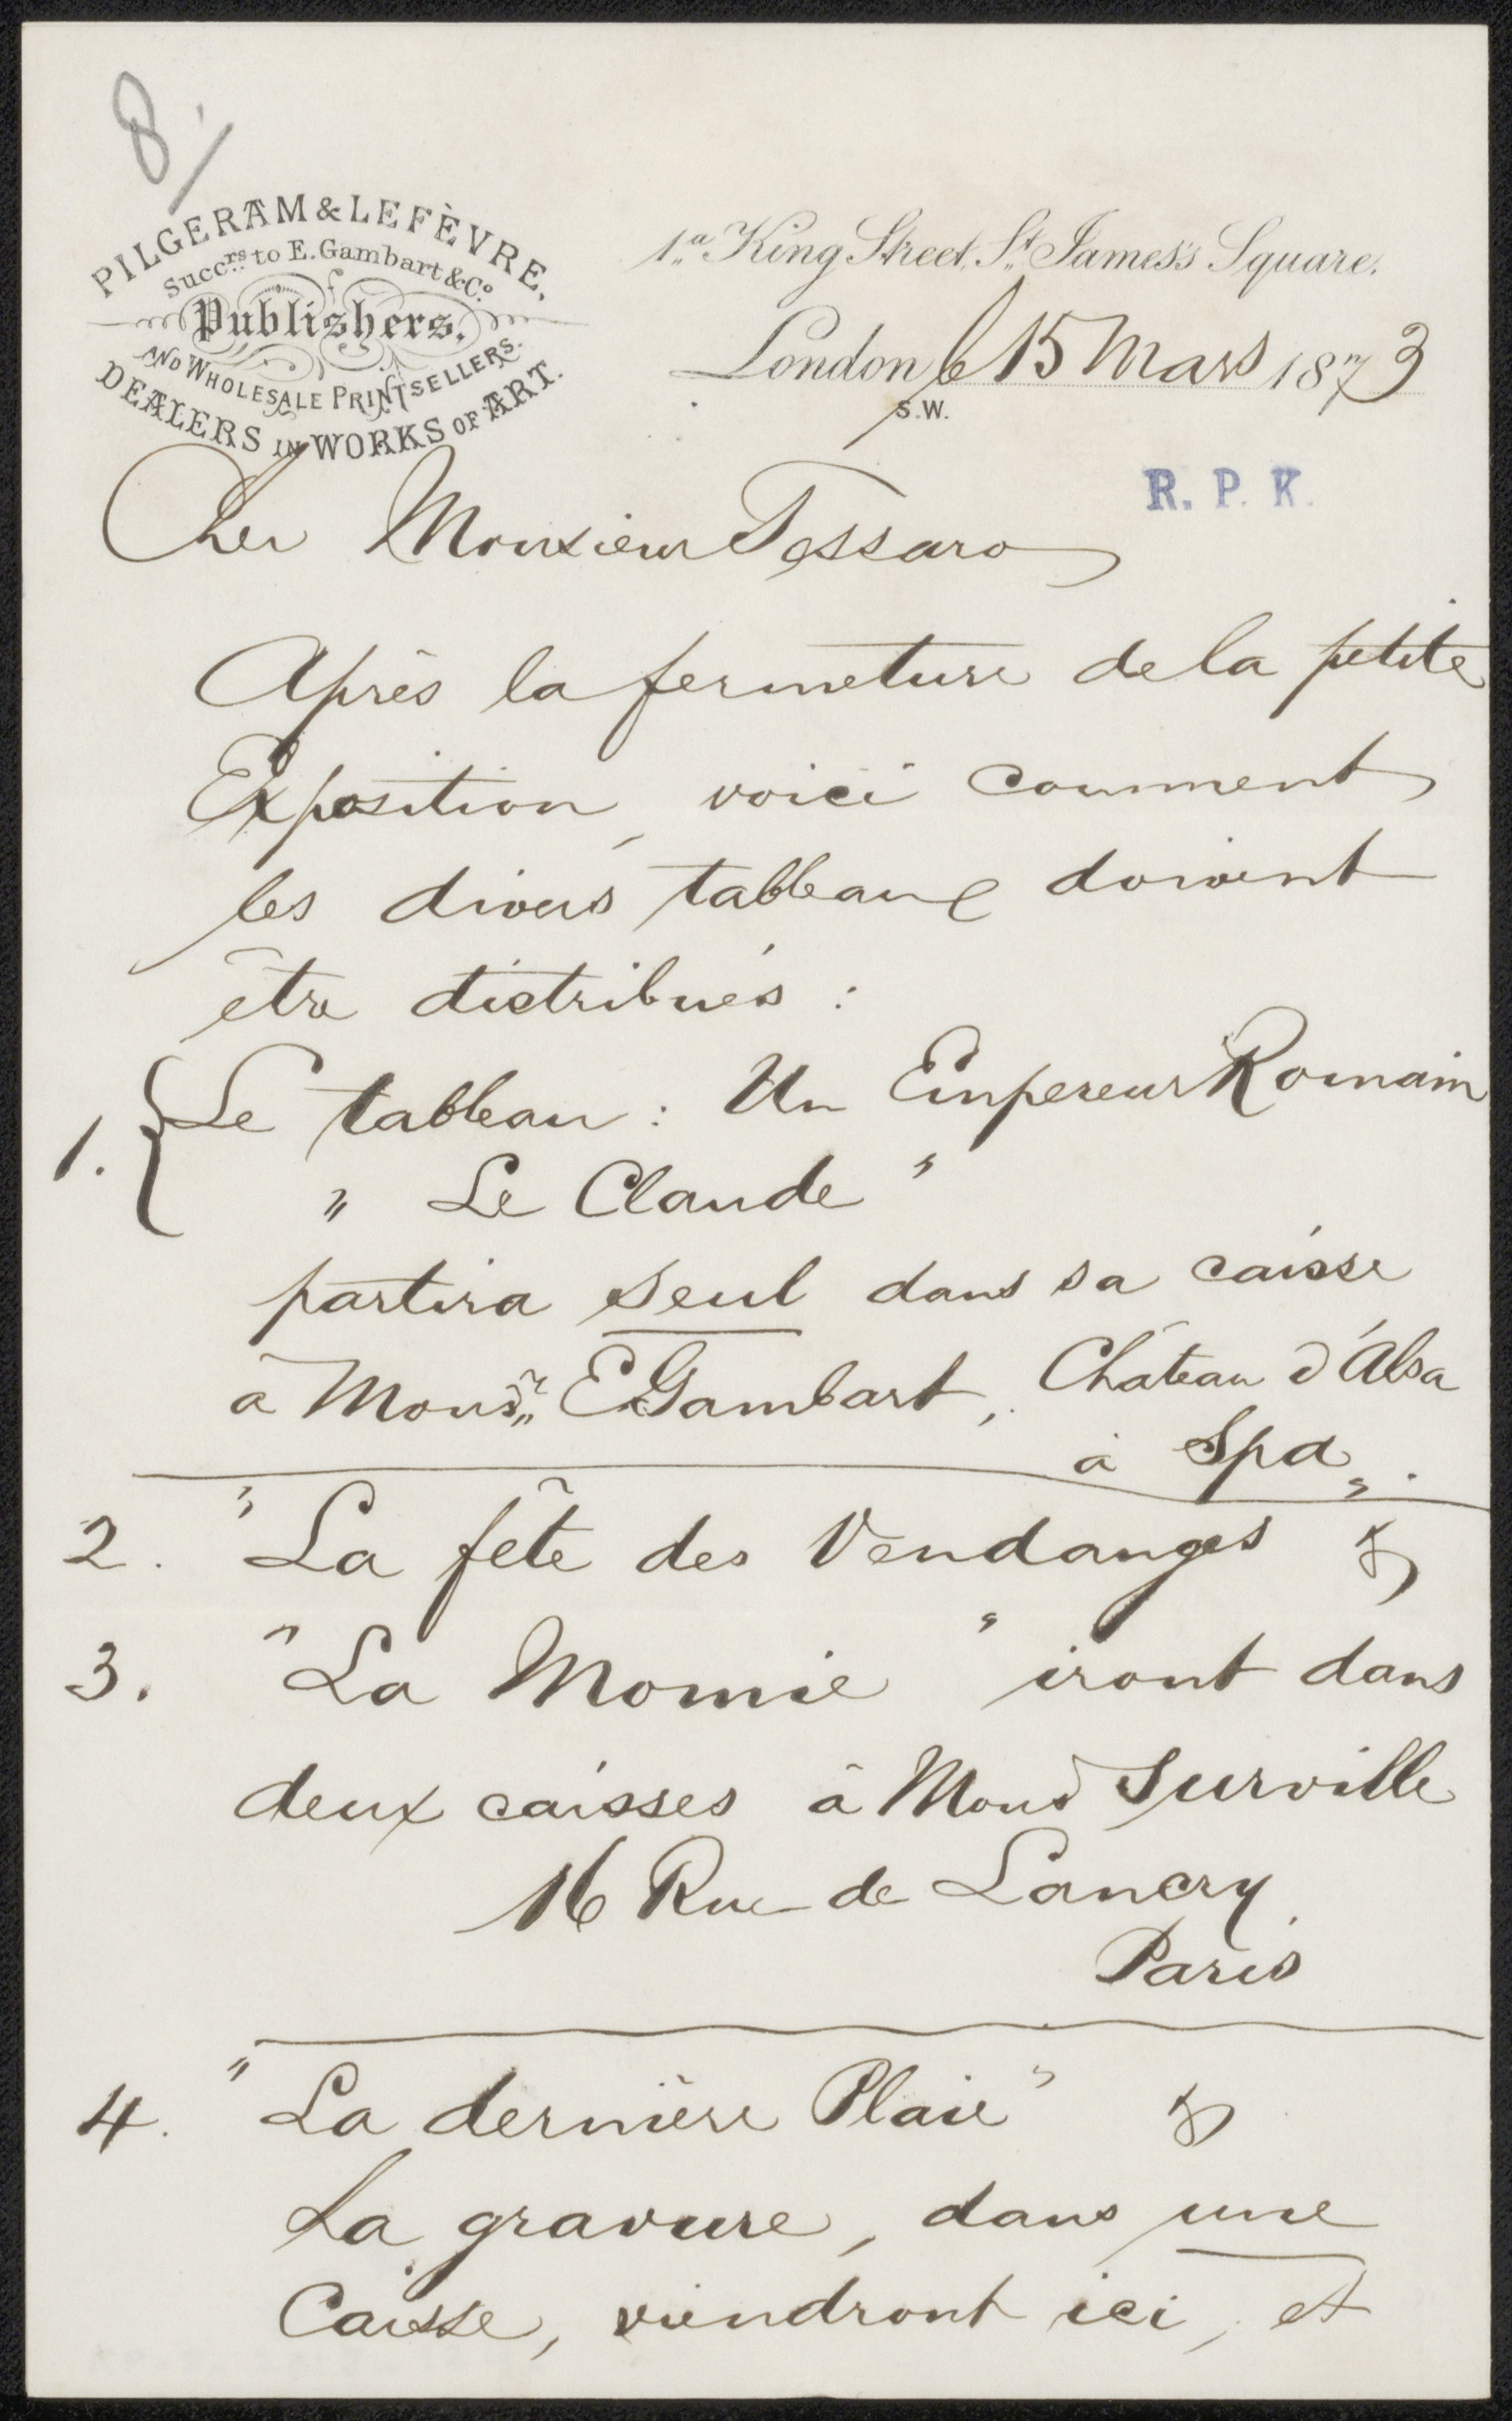 8/
PILGERAM & LEFÈVRE,
Succrs. to E. Gambart & Co.
Publishers,
AND WHOLESALE PRINTSELLERS.
DEALERS IN WORKS OF ART.
1a. King Street, St. James's Square,
London le 15 Mars 1873
S.W.
R. P. K.
Cher Monsieur Tessaro
Après la fermeture de la petite
Exposition, voici comment
les divers tableaux doivent
être distribués :
1. { Le tableau : Un Empereur Romain
" Le Claude "
partira seul dans sa caisse
à Monsr. E Gambart, Château d'Alsa
à Spa.
2. "La fête des Vendanges" &
3. "La Momie" iront dans
deux caisses à Mons Surville
16 Rue de Lancry
Paris
4. "La dernière Plaie" &
La gravure, dans une
Caisse, viendront ici, et